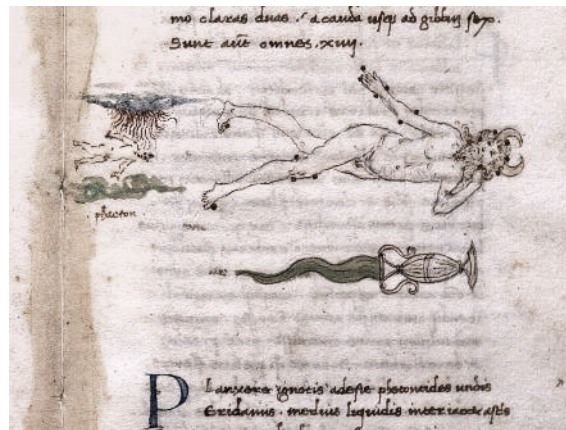 mo claras duas . a cauda usq; ad gibbũ sex.
Sunt aũt omnes .xiij.
phaeton
Planxere ignotis adeste phetonides undis
Eridanus . medius liquidis inter iacet